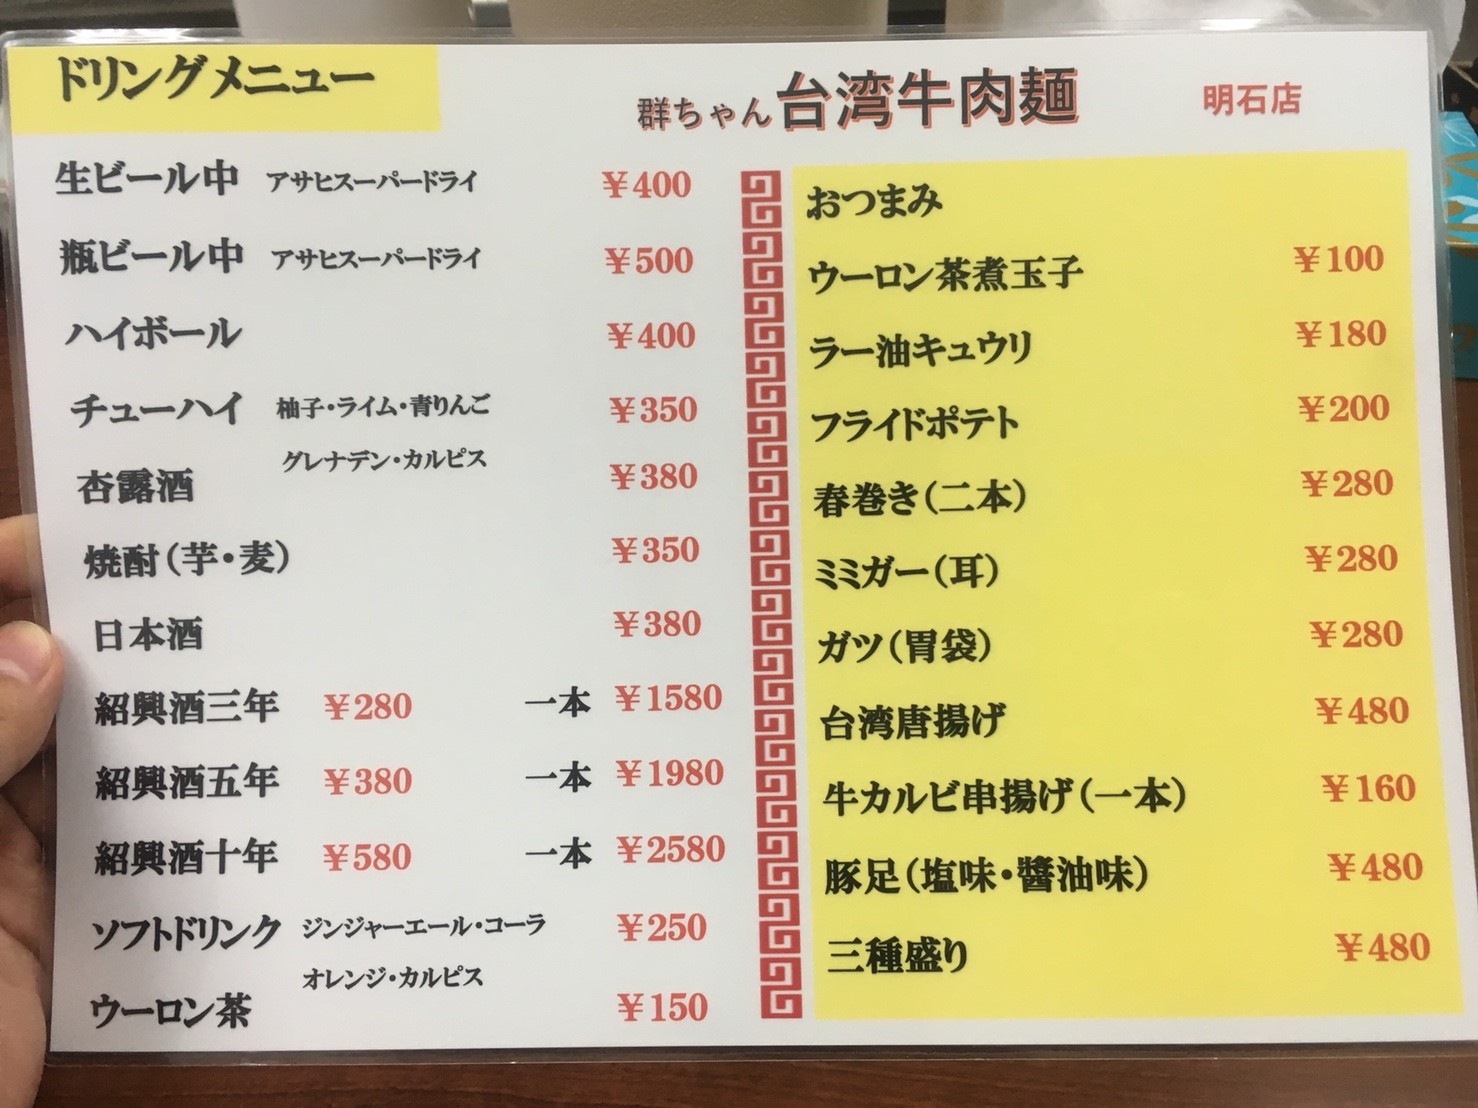 ドリングメニュー
群ちゃん台湾牛肉麺 明石店
生ビール中 アサヒスーパードライ ￥400
瓶ビール中 アサヒスーパードライ ￥500
ハイボール ￥400
チューハイ 柚子・ライム・青りんご ￥350
グレナデン・カルピス
杏露酒 ￥380
焼酎（芋・麦） ￥350
日本酒 ￥380
紹興酒三年 ￥280 一本 ￥1580
紹興酒五年 ￥380 一本 ￥1980
紹興酒十年 ￥580 一本 ￥2580
ソフトドリンク ジンジャーエール・コーラ ￥250
オレンジ・カルピス
ウーロン茶 ￥150
おつまみ
ウーロン茶煮玉子 ￥100
ラー油キュウリ ￥180
フライドポテト ￥200
春巻き（二本） ￥280
ミミガー（耳） ￥280
ガツ（胃袋） ￥280
台湾唐揚げ ￥480
牛カルビ串揚げ（一本） ￥160
豚足（塩味・醬油味） ￥480
三種盛り ￥480